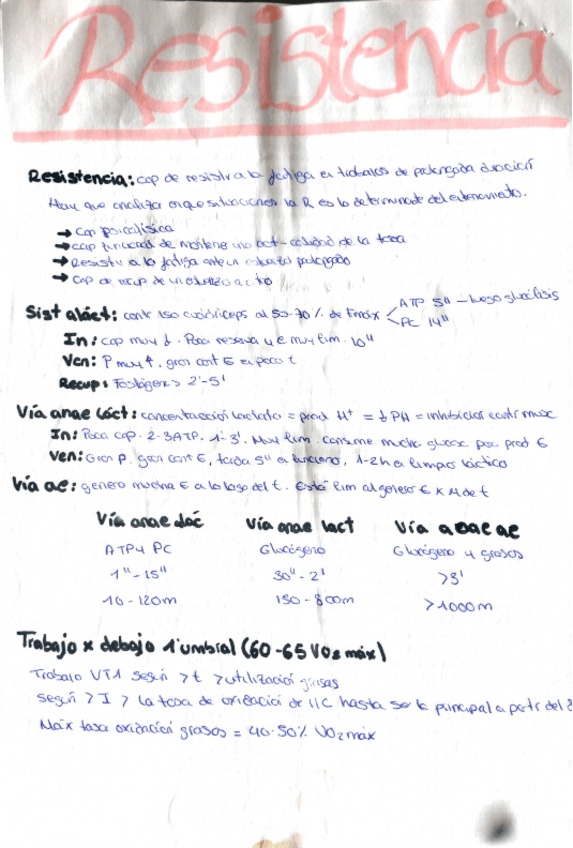 Resistencia
Resistencia: cap de resistir a la fatiga en trabajos de prolongada duración
Hay que analizar en que situaciones la R es la determinante del entrenamiento.
→ Cap psicofísica
→ cap funcional de mantener una act - calidad de la tarea
→ Resistir a la fatiga ante un esfuerzo prolongado
→ Cap de recup de un esfuerzo
Sist aláct: contr iso cuádriceps al 50-70% de Fmáx < ATP 5" - luego glucólisis
PC 14"
In: cap muy ↓. Poca reserva y E muy lim. 10"
Ven: P muy ↑, gran cant E en poco t
Recup: Fosfágenos 2'-5'
Vía anae láct: concentración lactato = prod H⁺ = ↓ PH = inhibición contr musc
In: Poca cap. 2-3ATP. 1'-3'. Muy lim. consume mucha glucosa por prod E
Ven: Gran P. gran cant E, tarda 5" en funcionar, 1-2h en limpiar láctico
Vía ae: genera mucha E a lo largo del t. Está lim al generar E x de t
Vía anae alác Vía anae lact Vía ae
ATP y PC Glucógeno Glucógeno y grasas
1"-15" 30"-2' >3'
10-120m 150-800m >1000m
Trabajo x debajo 1º umbral (60-65 VO2 máx)
Trabajo VT1 según >t >utilización grasas
según >I > la tasa de oxidación de HC hasta ser la principal a partir del
Máx tasa oxidación grasas = 40-50% VO2máx